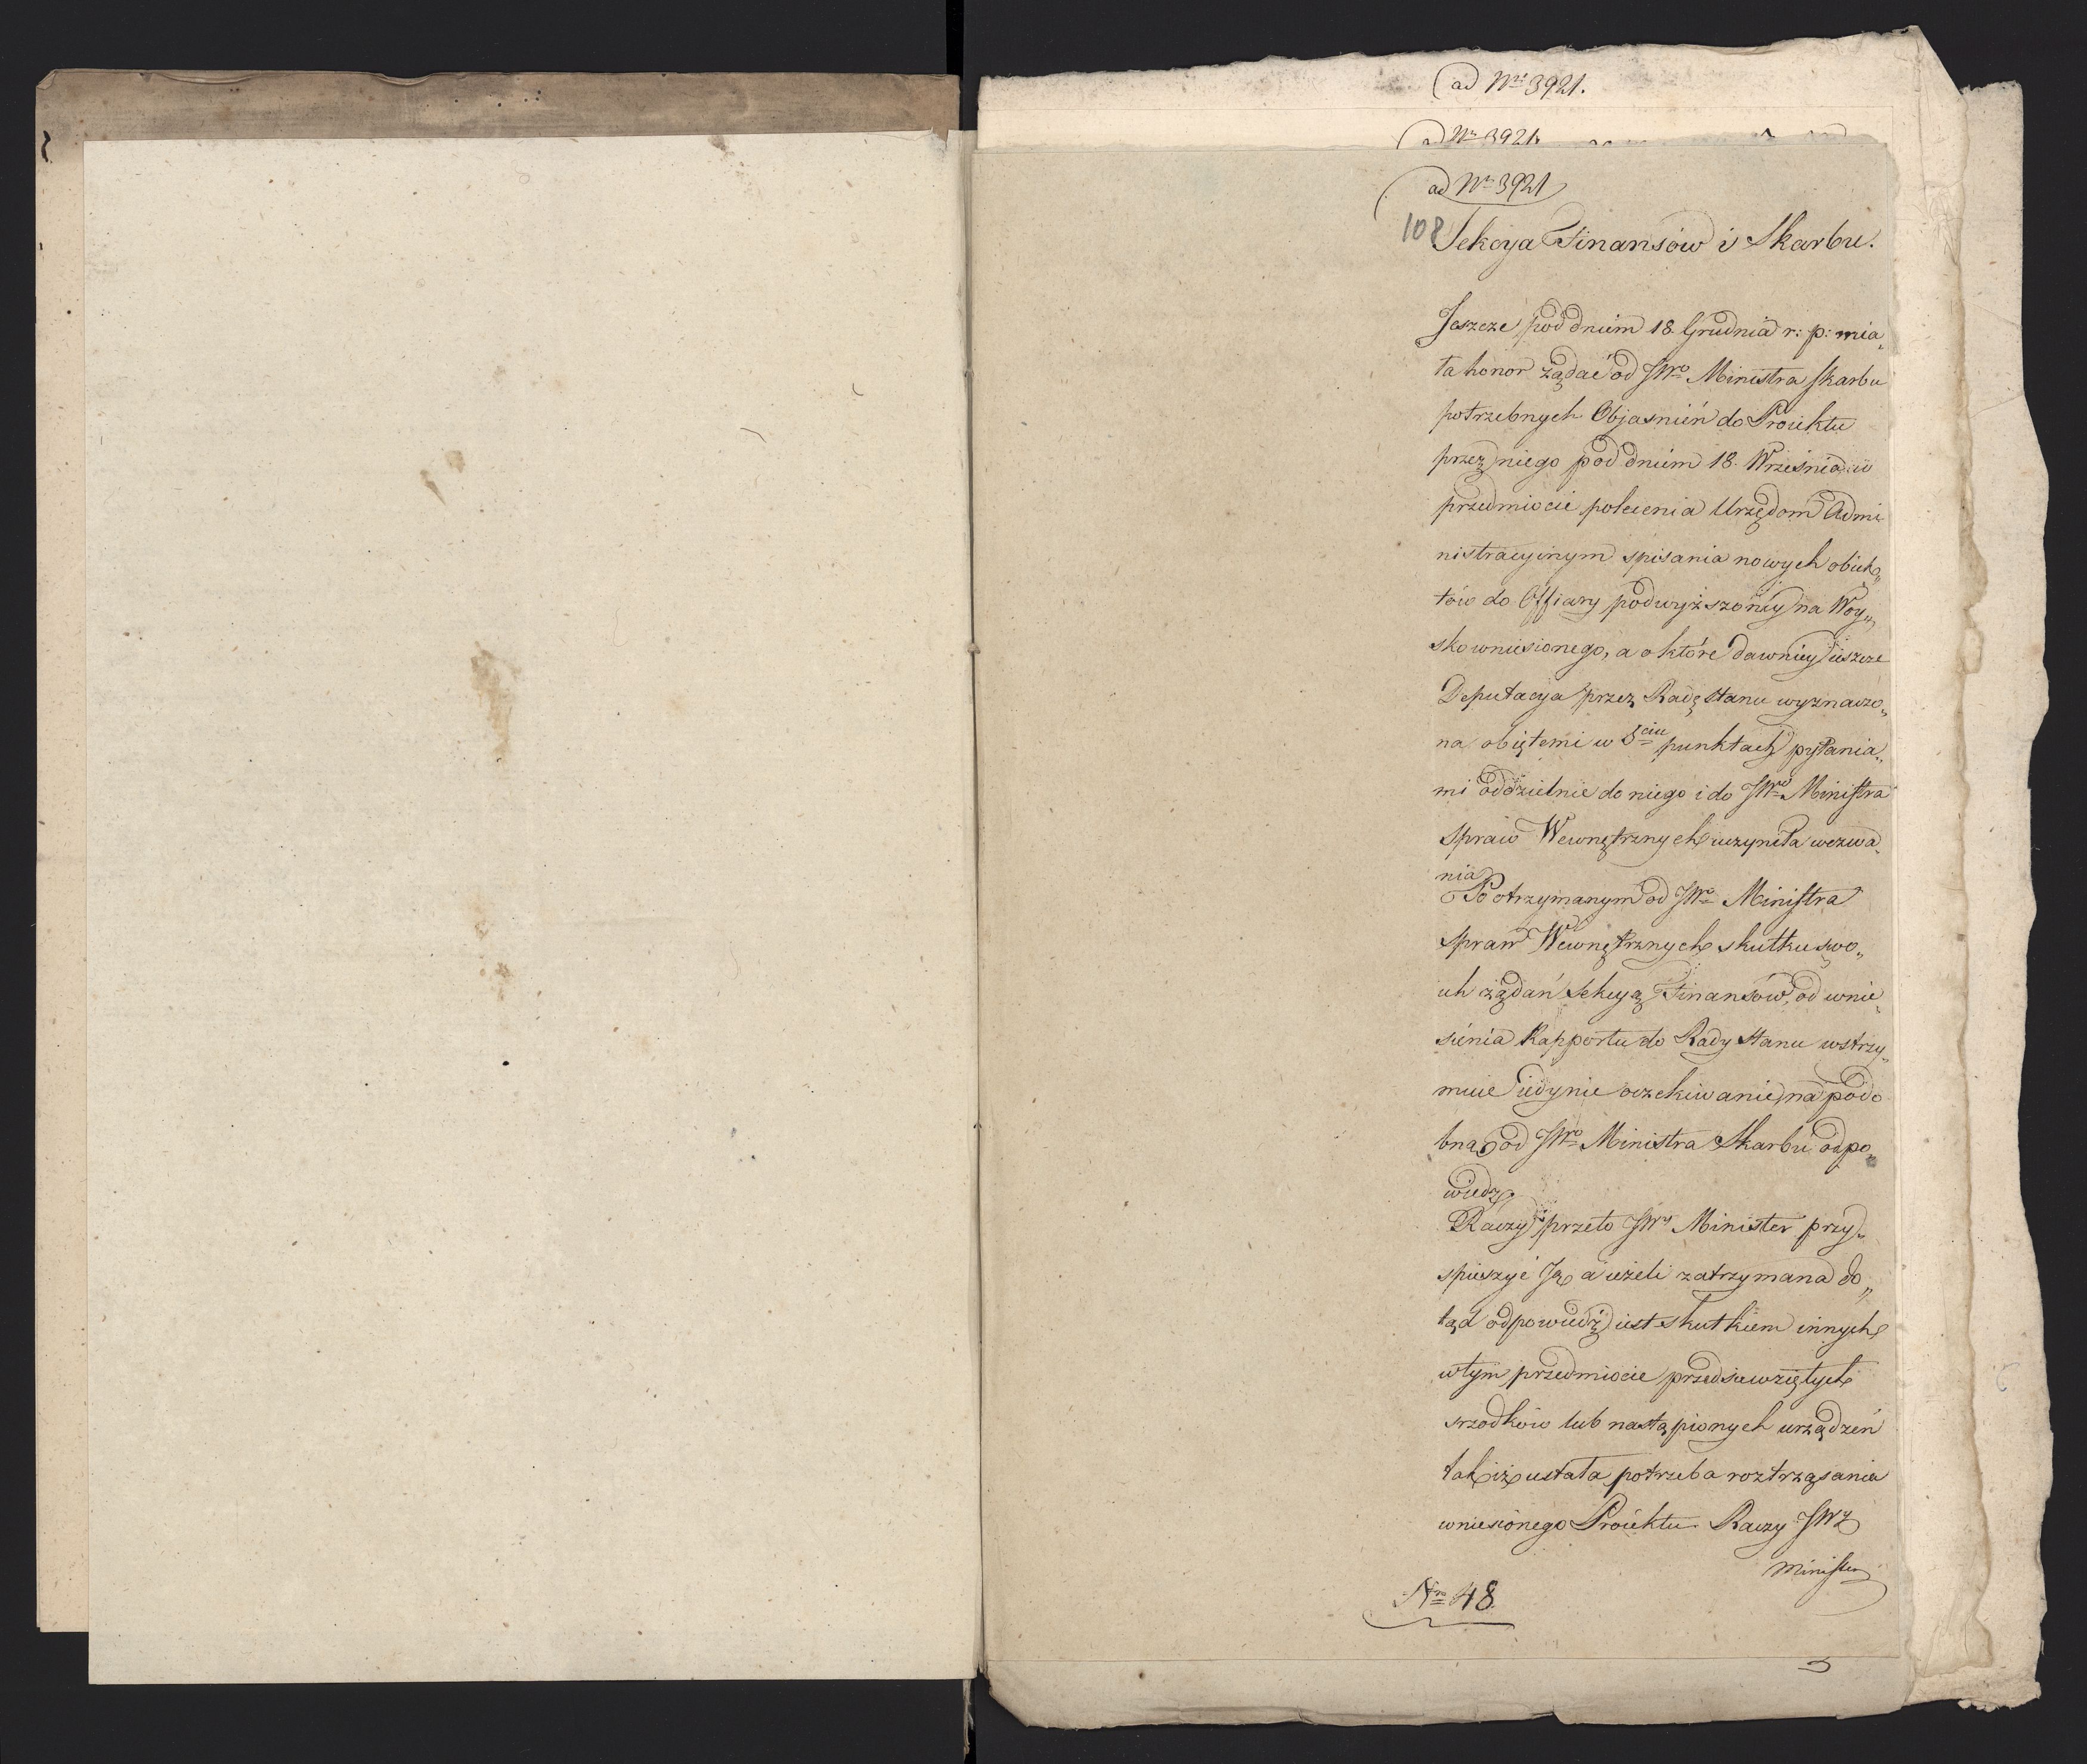 ad Nrü 3921.
ad Nr 3921
ad Nr 3921
108
Sekcya Finansów i Skarbu.
Jeszcze pod dniem 18 Grudnia r: p: mia„
ła honor żądać od JWo Ministra Skarbu
potrzebnych Objasnień do Proiektu
przez niego pod dniem 18. Wrześnía w
przedmiocie polecenia Urzędom Admi
nistracyinym spisania nowych obiek„
tów do Offiary podwyższoney na Woy„
sko wniesionego, a o które dawniey ieszcze
Deputacya przez Radę Stanu wyznaczo„
na obiętemi w 5ciu punktach pytania„
mi oddzielnie do niego i do JWo Ministra
Spraw Wewnętrznych uczyniła wezwa„
nia
Po otrzymanym od JWo Ministra
Spraw Wewnętrznych skutku swo„
ich żądań Sekcyą Finansów, od wnie„
sienia Rapportu do Rady Stanu wstrzy„
muie iedynie oczekiwanie na podo
bną od JWo Ministra Skarbu odpo„
wiedz.
Raczy przeto JWy Minister przy„
spieszyć Ją a ieżeli zatrzymana do„
tąd odpowiedź iest skutkiem innych
w tym przedmiocie przedsiewziętych
srzodków lub nastąpionych urządzeń
tak iż ustała potrzeba roztrząsania
wniesionego Proiektu. Raczy JWy
Minister
Nro 48